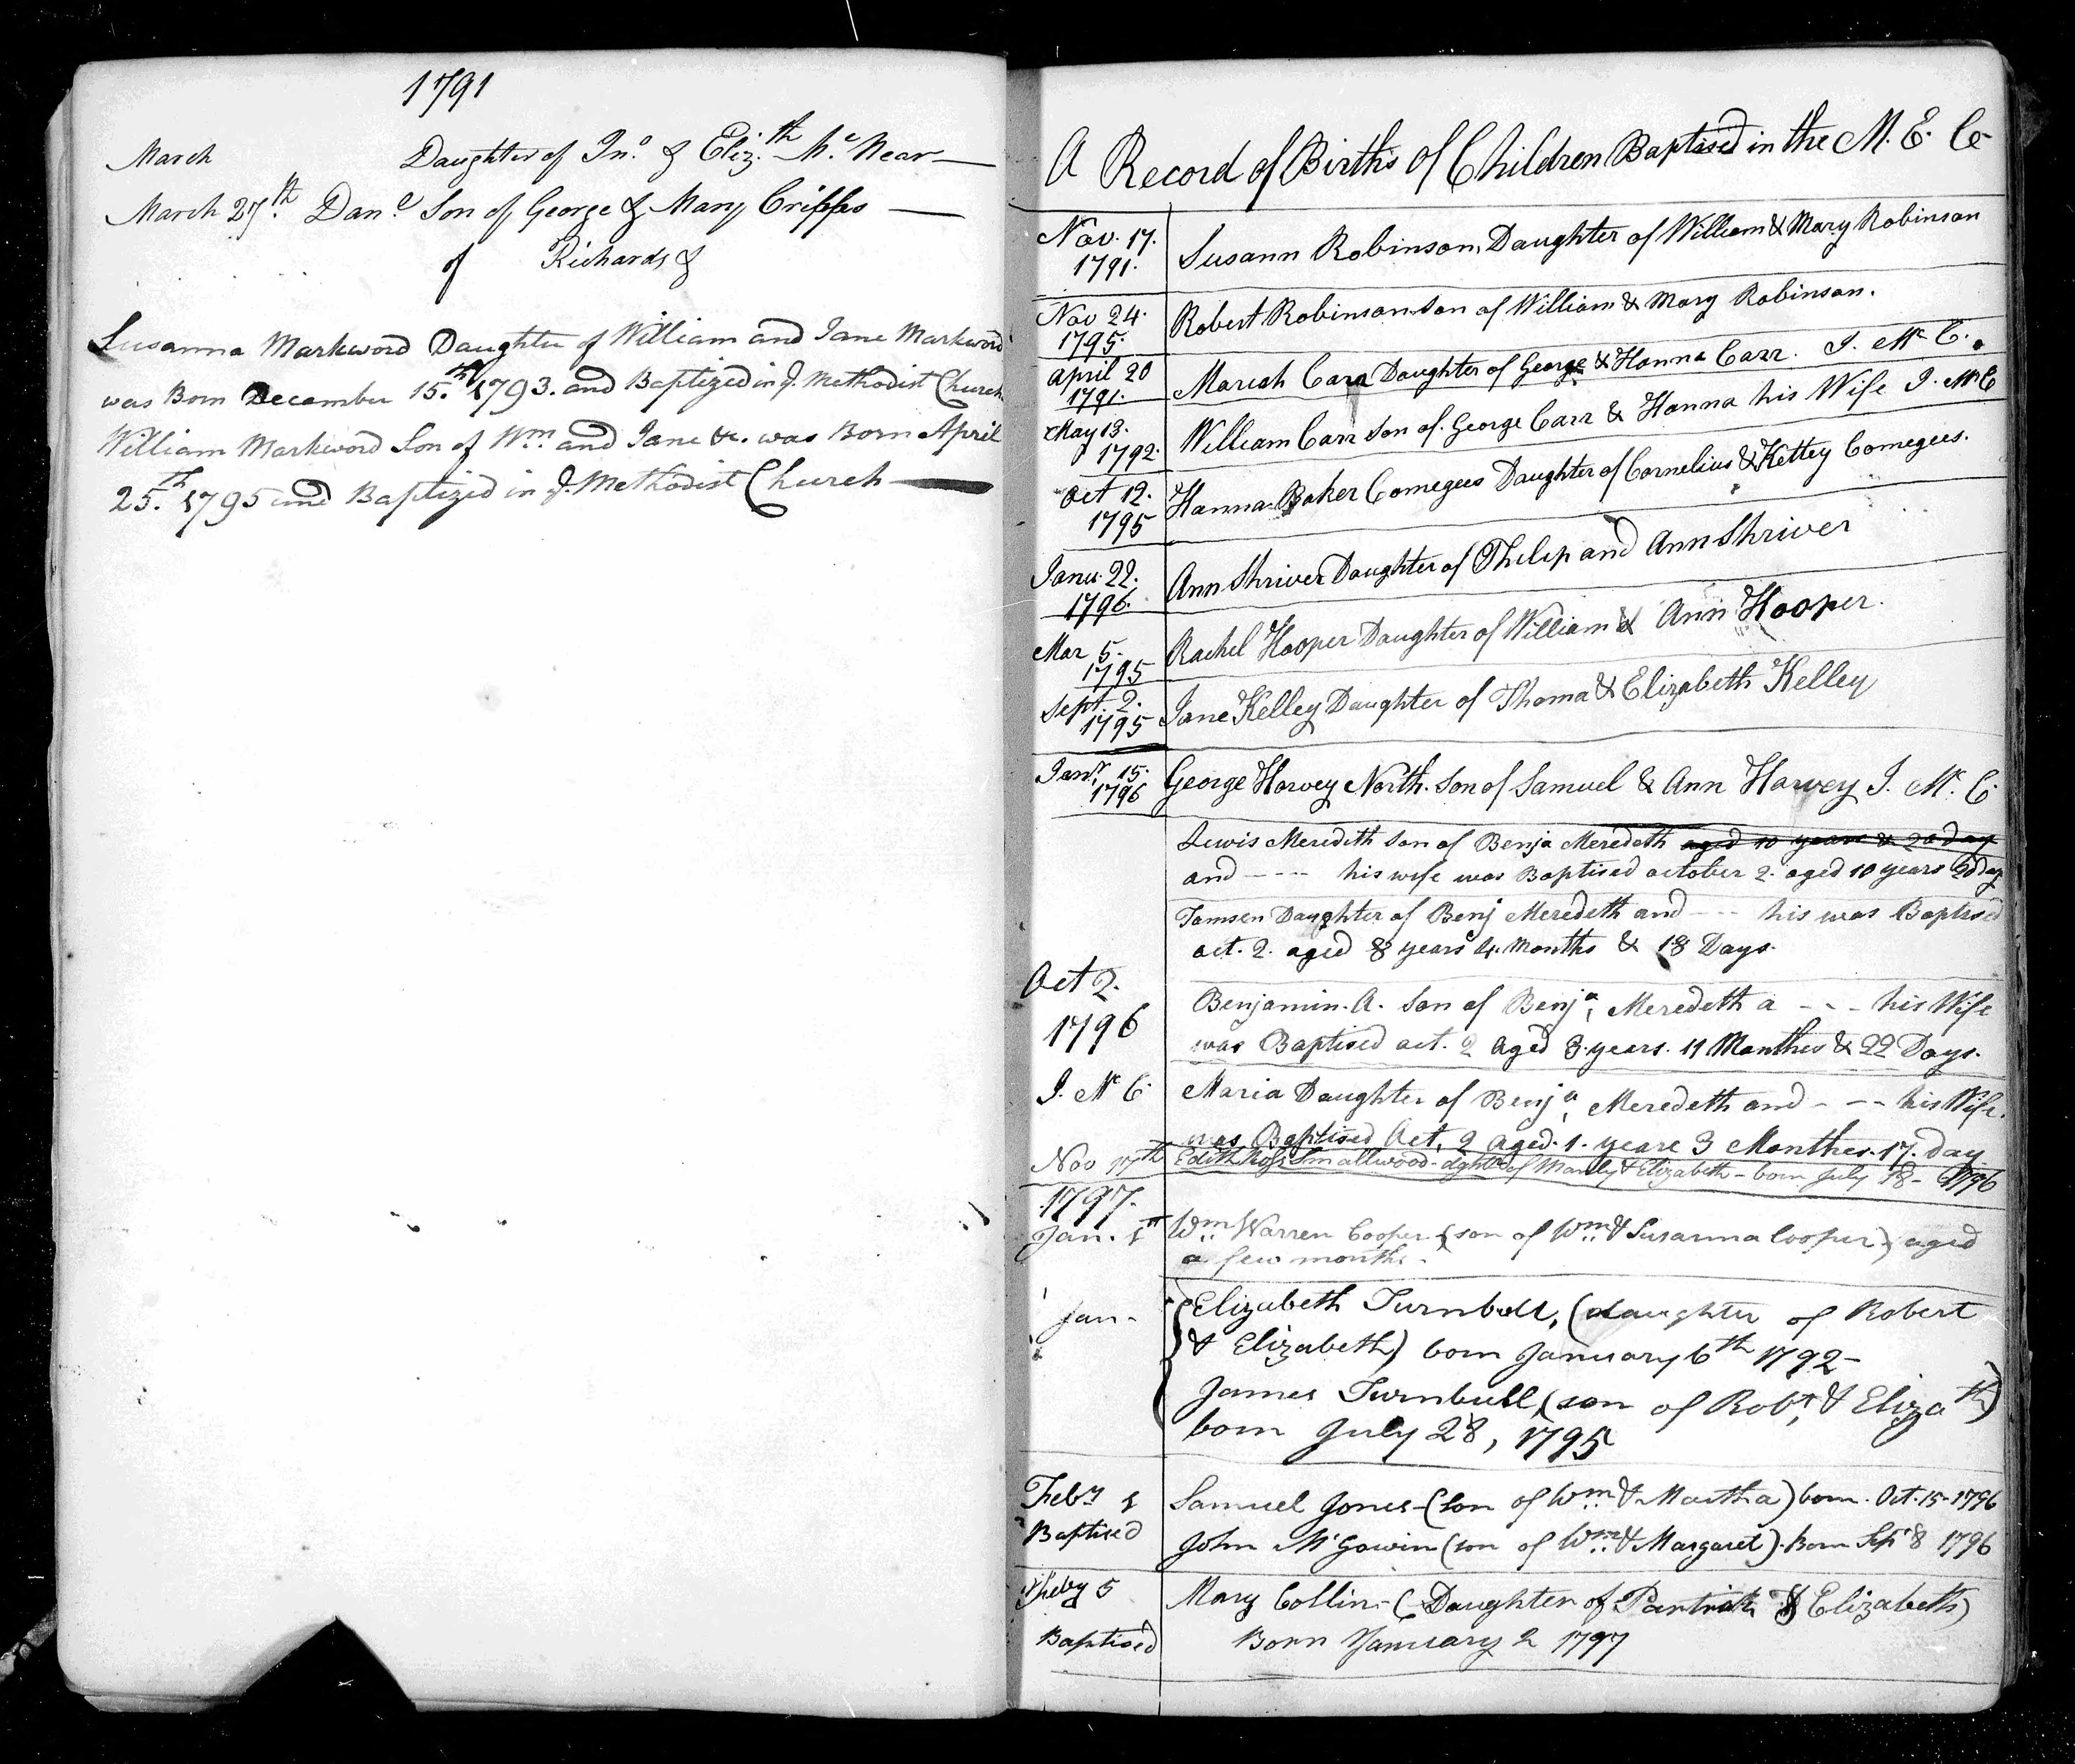 1791
March Daughter of Jno. & Eliz.th Mc Near
March 27th. Danl. Son of George & Mary Cripps
of Richards &
Susanna Markword Daughter of William and Jane Markword
was Born December 15.th 1793. and Baptized in ye. Methodist Church
William Markword Son of Wm. and Jane &c. was Born April
25.th 1795 and Baptized in ye. Methodist Church
A Record of Births of Children Baptised in the M. E. C
Nov. 17. 1791. Susann Robinson, Daughter of William & Mary Robinson
Nov 24. 1795. Robert Robinson son of William & Mary Robinson.
April 20 1791. Mariah Carr Daughter of George & Hanna Carr. J. Mc C.
May 13. 1792. William Carr son of George Carr & Hanna his Wife J. Mc C
Oct 12. 1795 Hanna Baker Comegees Daughter of Cornelius & Kettey Comegees.
Janu. 22. 1796. Ann Shriver Daughter of Philip and Ann Shriver
Mar 5. 1795 Rachel Hooper Daughter of William & Ann Hooper.
Sept. 2. 1795 Jane Kelley Daughter of Thoma & Elizabeth Kelley
Janr. 15. 1796 George Harvey North. Son of Samuel & Ann Harvey J. Mc. C.
Lewis Meredith son of Benja Meredeth aged 10 years & 20 day
and ---- his wife was Baptised october 2. aged 10 years 20 day
Tamsen Daughter of Benj Meredeth and --- his was Baptised
oct. 2. aged 8 years 4. Months & 18 Days.
Oct 2.
1796
Benjamin. A. Son of Benja, Meredeth a - - - his Wife
was Baptised oct. 2 aged 3. years. 11 Monthes & 22 Days.
J. Mc C. Maria Daughter of Benja, Meredeth and - - - his Wife.
was Baptised Oct, 2 aged. 1. yeare 3 Monthes. 17. day
Nov 17th Edith Ross Smallwood - dghter of Manly & Elizabeth - born July 18 - 1796
1797.
Jan. 1st Wm.. Warren Cooper - (son of Wm.. & Susanna Cooper) aged
a few months -
Jan - Elizabeth Turnbull, (daughter of Robert
& Elizabeth) born January 6th 1792 -
James Turnbull, (son of Robt, & Elizath)
born July 28, 1795
Feby 1 Samuel Jones - (son of Wm.. & Martha) born. Oct. 15 - 1796
Baptised John McGowin (son of Wm.. & Margaret). Born Sepr 8 1796
Feby 5 Mary Collins - (Daughter of & Elizabeth)
Baptised Born January 2 1797